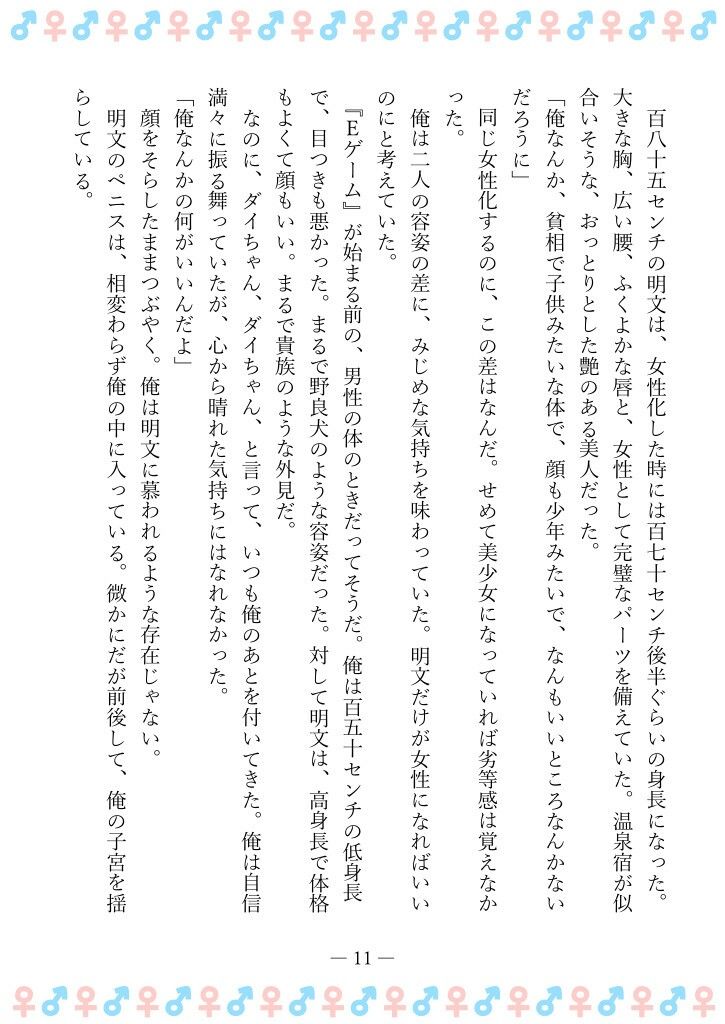 百八十五センチの明文は、女性化した時には百七十センチ後半ぐらいの身長になった。
大きな胸、広い腰、ふくよかな唇と、女性として完璧なパーツを備えていた。温泉宿が似
合いそうな、おっとりとした艶のある美人だった。
「俺なんか、貧相で子供みたいな体で、顔も少年みたいで、なんもいいところなんかない
だろうに」
同じ女性化するのに、この差はなんだ。せめて美少女になっていれば劣等感は覚えなか
った。
俺は二人の容姿の差に、みじめな気持ちを味わっていた。明文だけが女性になればいい
のにと考えていた。
『Eゲーム』が始まる前の、男性の体のときだってそうだ。俺は百五十センチの低身長
で、目つきも悪かった。まるで野良犬のような容姿だった。対して明文は、高身長で体格
もよくて顔もいい。まるで貴族のような外見だ。
なのに、ダイちゃん、ダイちゃん、と言って、いつも俺のあとを付いてきた。俺は自信
満々に振る舞っていたが、心から晴れた気持ちにはなれなかった。
「俺なんかの何がいいんだよ」
顔をそらしたままつぶやく。俺は明文に慕われるような存在じゃない。
明文のペニスは、相変わらず俺の中に入っている。微かにだが前後して、俺の子宮を揺
らしている。
― 11 ―